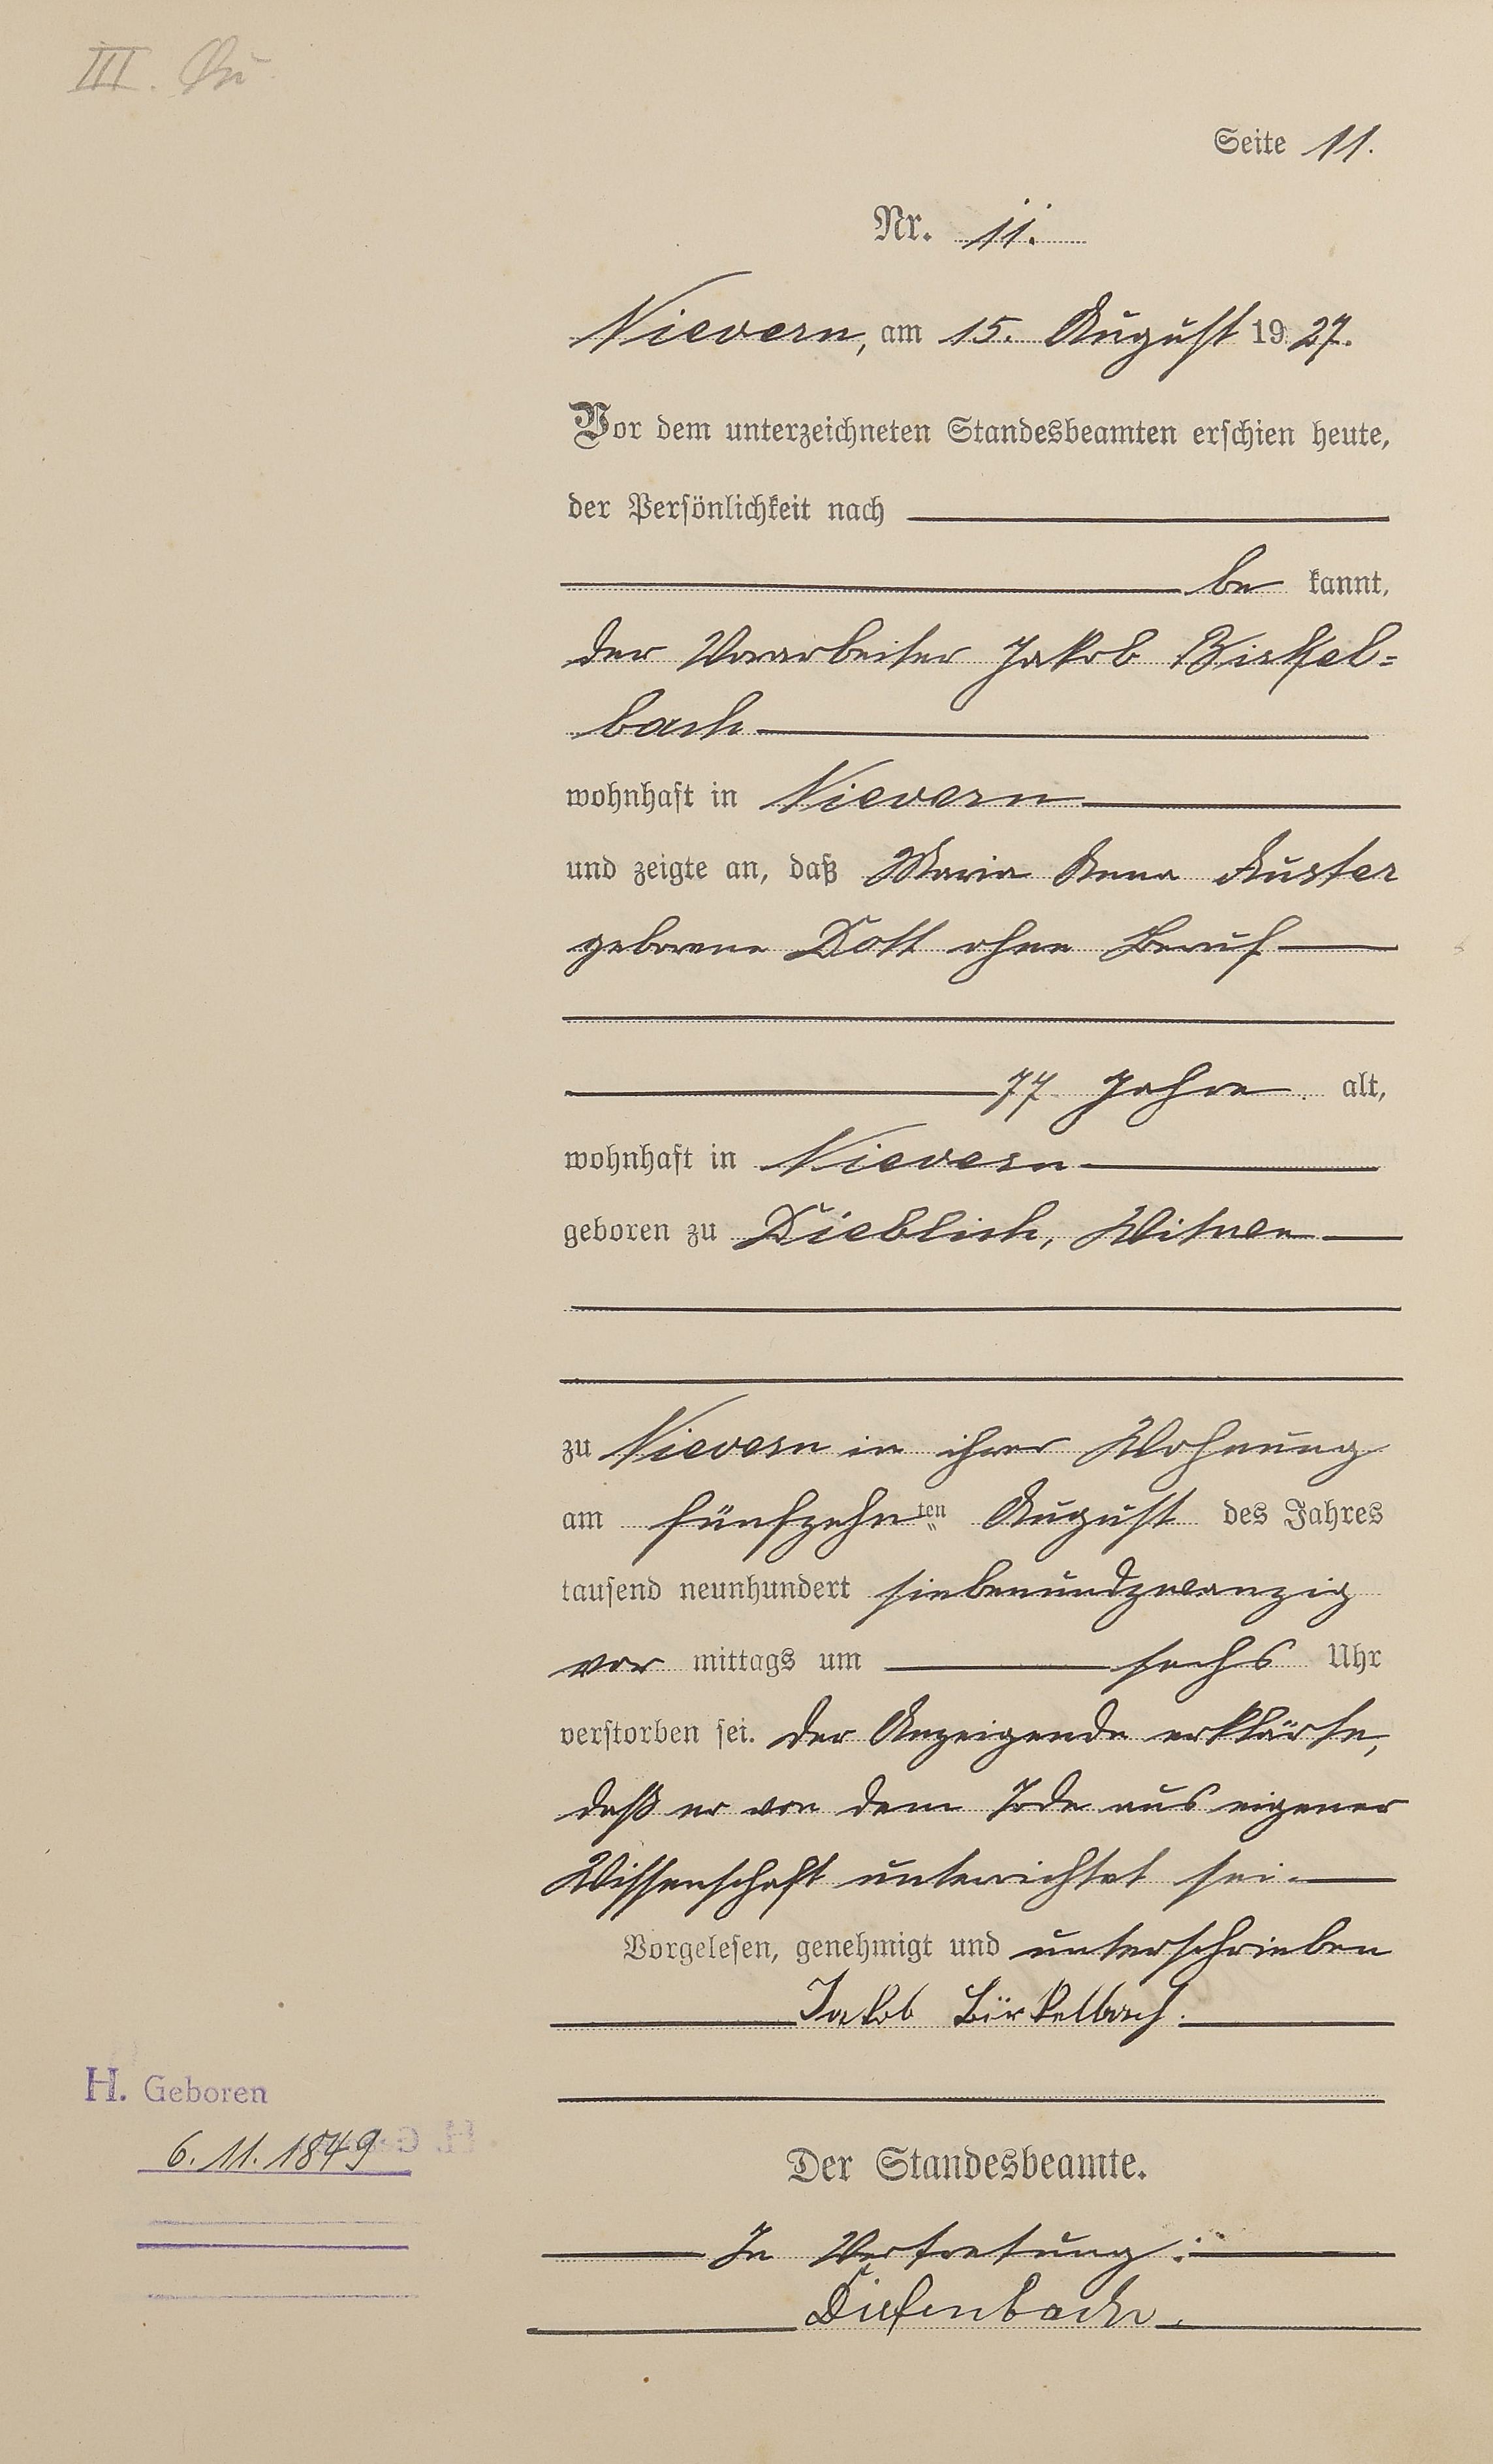 III.
Seite 11.
Nr. 11.
Nievern, am 15. August 1927.
Vor dem unterzeichneten Standesbeamten erschien heute,
der Persönlichkeit nach
be kannt,
der Vorarbeiter Jakob Birkel=
bach
wohnhaft in Nievern
und zeigte an, daß Maria Anna Auster
geborene Dott ohne Beruf
77 Jahre alt,
wohnhaft in Nievern
geboren zu Dieblich, Witwe
zu Nievern in ihrer Wohnung
am fünfzehnten August des Jahres
tausend neunhundert siebenundzwanzig
vor mittags um sechs Uhr
verstorben sei. Der Anzeigende erklärte,
daß er von dem Tode aus eigener
Wissenschaft unterrichtet sei.
Vorgelesen, genehmigt und unterschrieben
Jakob Birkelbach.
H. Geboren
6. 11. 1849
Der Standesbeamte.
In Vertretung:
Diefenbach.